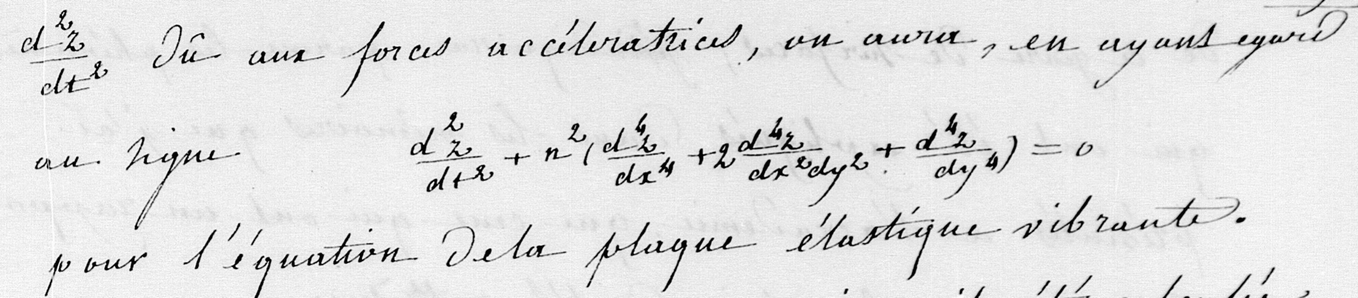 d²z/dt² dû aux forces accéleratrices, on aura, en ayant egard
au signe d²z/dt² + n²(d⁴z/dx⁴ + 2 d⁴z/dx²dy² + d⁴z/dy⁴) = 0
pour l'équation dela plaque élastique vibrante.